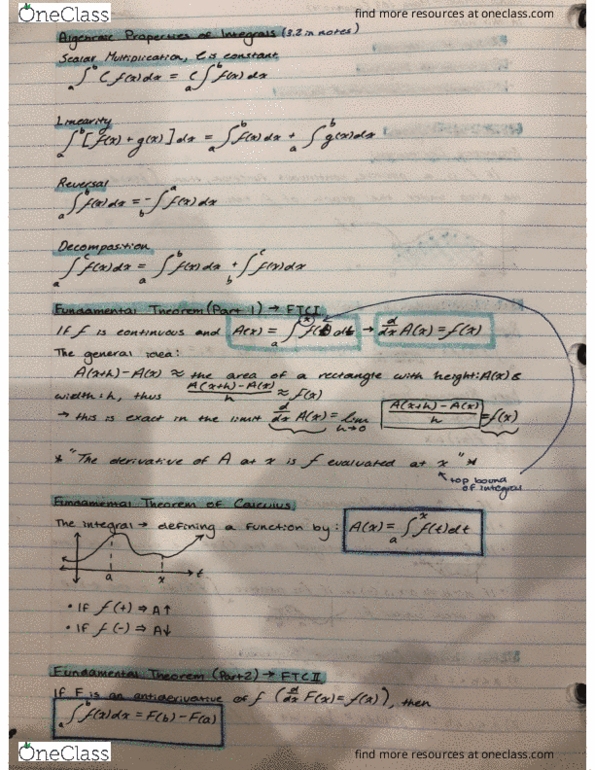 OneClass
find more resources at oneclass.com
Algebraic Properties of Integrals (3.2 in notes)
Scalar Multiplication, C is constant
a∫b C f(x)dx = C a∫b f(x) dx
Linearity
a∫b [f(x) + g(x)] dx = a∫b f(x)dx + a∫b g(x)dx
Reversal
a∫b f(x)dx = - b∫a f(x)dx
Decomposition
a∫c f(x)dx = a∫b f(x)dx + b∫c f(x)dx
Fundamental Theorem (Part 1) → FTCI
If f is continuous and A(x) = a∫x f(t) dt → d/dx A(x) = f(x)
The general idea:
A(x+h) - A(x) ≈ the area of a rectangle with height: A(x) &
width: h, thus (A(x+h) - A(x))/h ≈ f(x)
→ this is exact in the limit d/dx A(x) = lim h→0 (A(x+h) - A(x))/h = f(x)
* "The derivative of A at x is f evaluated at x" *
top bound
of integral
Fundamental Theorem of Calculus
The integral → defining a function by: A(x) = a∫x f(t)dt
a x t
• If f (+) ⇒ A↑
• If f (-) ⇒ A↓
Fundamental Theorem (Part 2) → FTCII
If F is an antiderivative of f (d/dx F(x) = f(x)), then
a∫b f(x)dx = F(b) - F(a)
OneClass
find more resources at oneclass.com